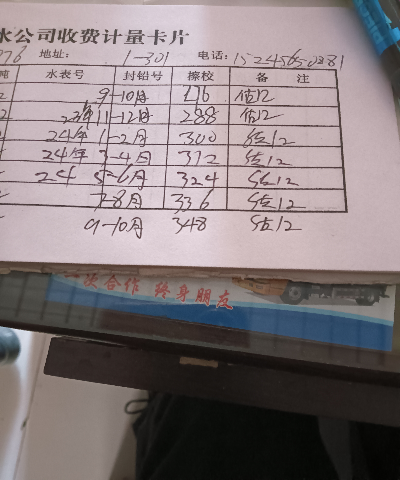 水公司收费计量卡片
地址: 1-301 电话: 15245650881
吨 水表号 封铅号 擦校 备 注
2 9-10月 276 估12
2 23年 11-12月 288 估12
24年 1-2月 300 估12
24年 3-4月 312 估12
24 5-6月 324 估12
7-8月 336 估12
9-10月 348 估12
一次合作 终身朋友